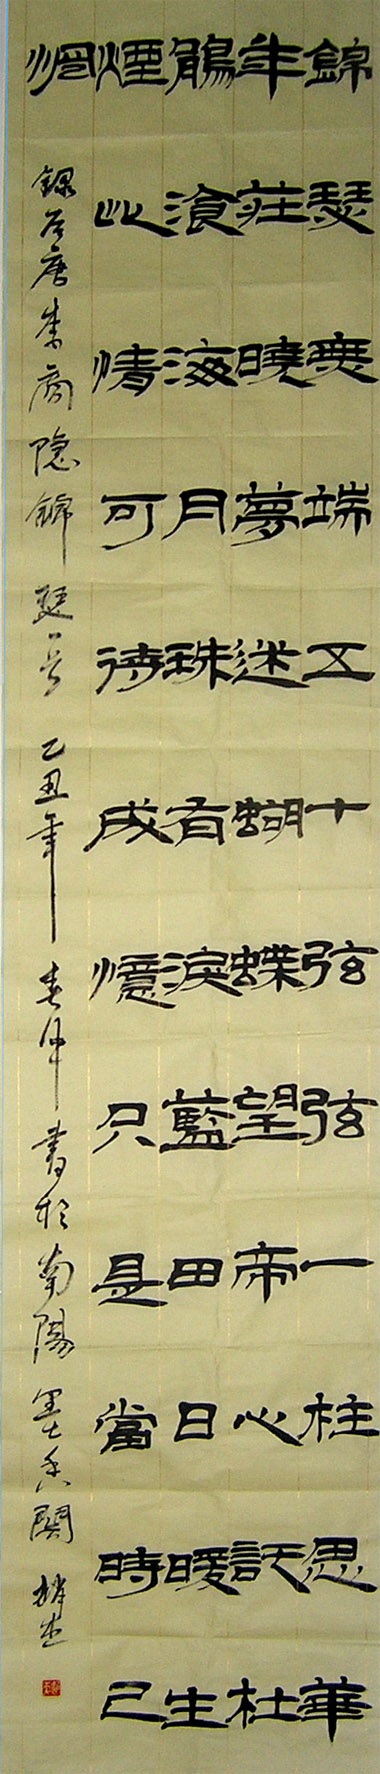 錦瑟無端五十弦弦一柱思華
年莊曉夢迷蝴蝶望帝心託杜
鵑滄海月珠有淚藍田日暖生
煙此情可待成憶只是當時已
惘
錄唐李商隐錦瑟一首 乙丑年春仲書於南陽墨香閣